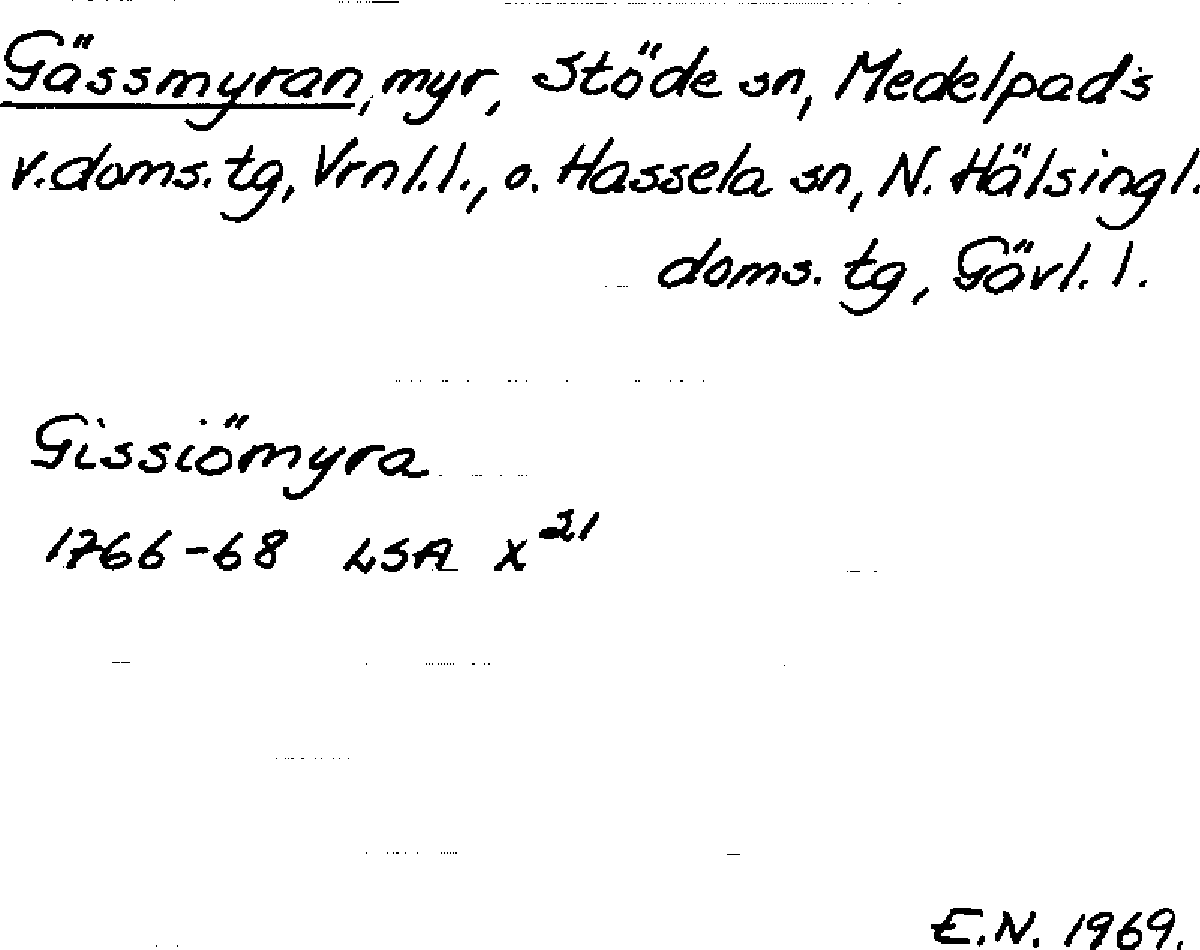 Gässmyran, myr, Stöde sn, Medelpads
v. doms. tg, Vrnl. l., o. Hassela sn, N. Hälsingl.
doms. tg, Gävl. l.
Gissiömyra
1766-68 LSA X²¹
E.N. 1969.